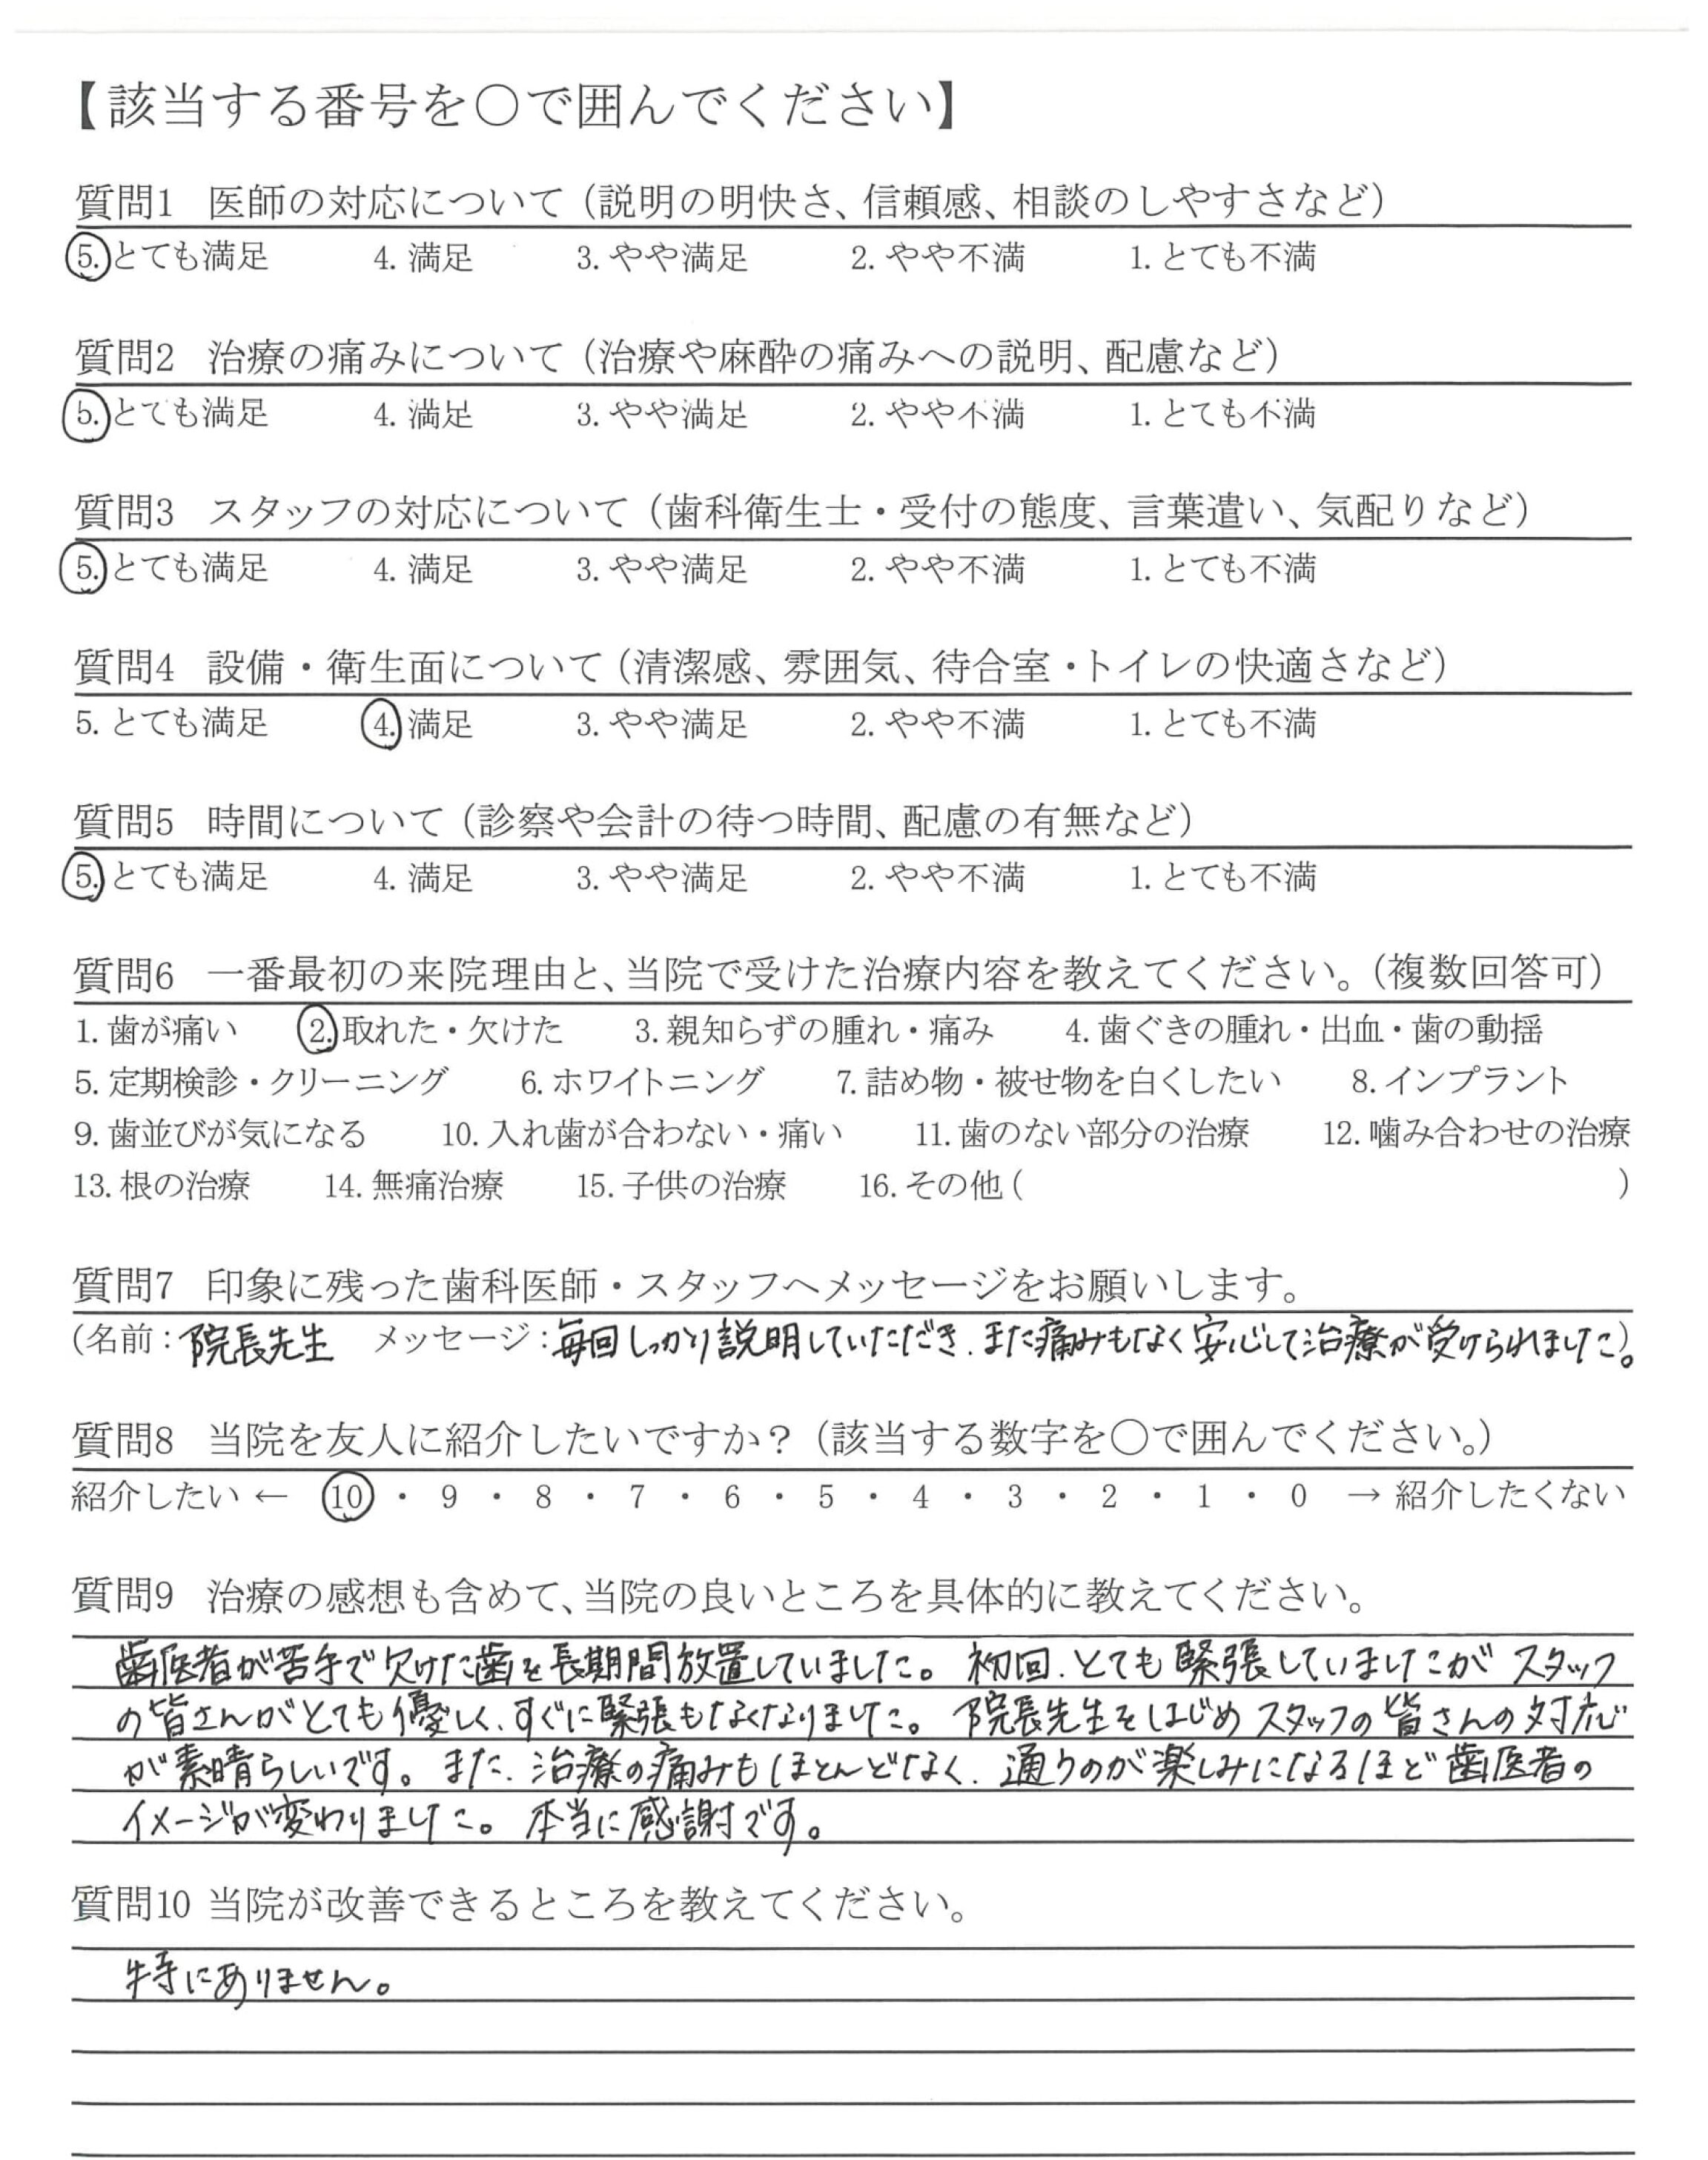 【該当する番号を○で囲んでください】
質問1 医師の対応について（説明の明快さ、信頼感、相談のしやすさなど）
5. とても満足 4. 満足 3. やや満足 2. やや不満 1. とても不満
質問2 治療の痛みについて（治療や麻酔の痛みへの説明、配慮など）
5. とても満足 4. 満足 3. やや満足 2. やや不満 1. とても不満
質問3 スタッフの対応について（歯科衛生士・受付の態度、言葉遣い、気配りなど）
5. とても満足 4. 満足 3. やや満足 2. やや不満 1. とても不満
質問4 設備・衛生面について（清潔感、雰囲気、待合室・トイレの快適さなど）
5. とても満足 4. 満足 3. やや満足 2. やや不満 1. とても不満
質問5 時間について（診察や会計の待つ時間、配慮の有無など）
5. とても満足 4. 満足 3. やや満足 2. やや不満 1. とても不満
質問6 一番最初の来院理由と、当院で受けた治療内容を教えてください。（複数回答可）
1. 歯が痛い 2. 取れた・欠けた 3. 親知らずの腫れ・痛み 4. 歯ぐきの腫れ・出血・歯の動揺
5. 定期検診・クリーニング 6. ホワイトニング 7. 詰め物・被せ物を白くしたい 8. インプラント
9. 歯並びが気になる 10. 入れ歯が合わない・痛い 11. 歯のない部分の治療 12. 噛み合わせの治療
13. 根の治療 14. 無痛治療 15. 子供の治療 16. その他（ ）
質問7 印象に残った歯科医師・スタッフへメッセージをお願いします。
（名前：院長先生 メッセージ：毎回しっかり説明していただき、また痛みもなく安心して治療が受けられました。）
質問8 当院を友人に紹介したいですか？（該当する数字を○で囲んでください。）
紹介したい ← 10 ・ 9 ・ 8 ・ 7 ・ 6 ・ 5 ・ 4 ・ 3 ・ 2 ・ 1 ・ 0 → 紹介したくない
質問9 治療の感想も含めて、当院の良いところを具体的に教えてください。
歯医者が苦手で欠けた歯を長期間放置していました。初回、とても緊張していましたがスタッフ
の皆さんがとても優しく、すぐに緊張もなくなりました。院長先生をはじめスタッフの皆さんの対応
が素晴らしいです。また、治療の痛みもほとんどなく、通うのが楽しみになるほど歯医者の
イメージが変わりました。本当に感謝です。
質問10 当院が改善できるところを教えてください。
特にありません。